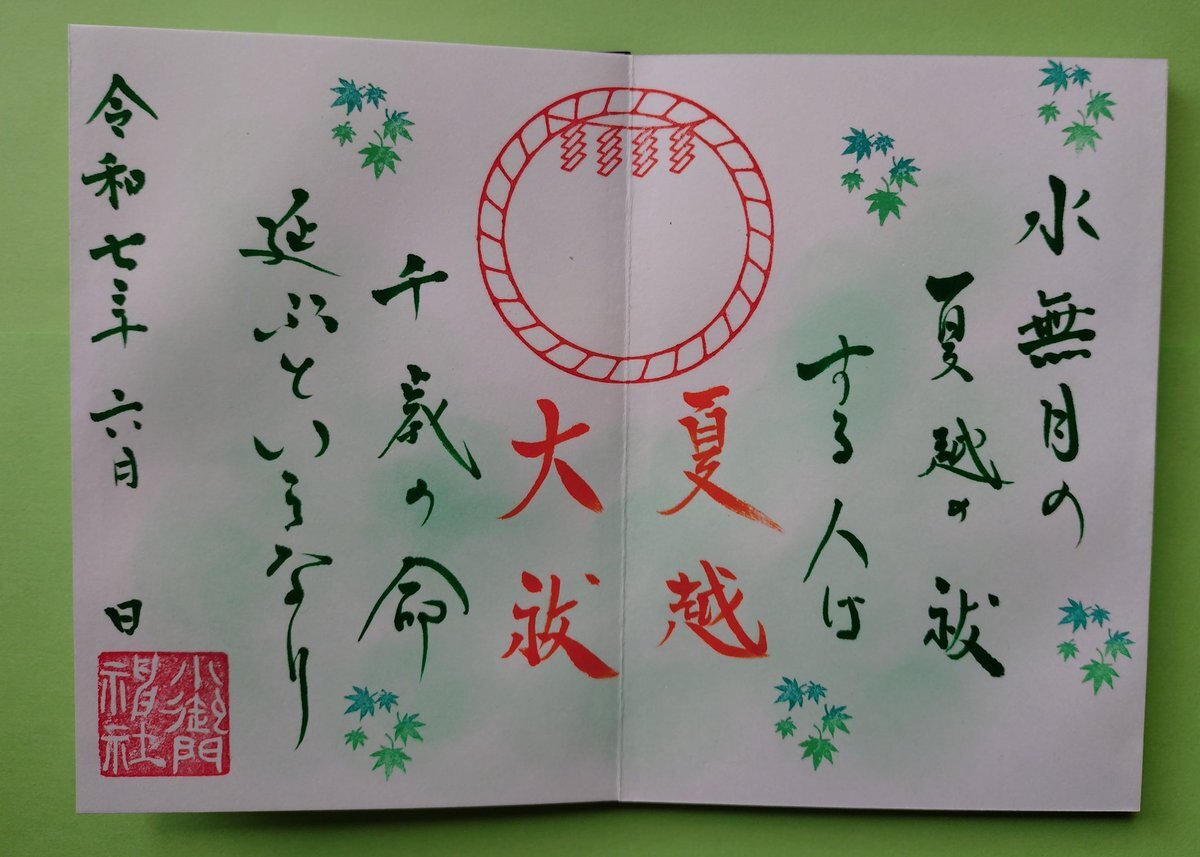 水無月の
夏越の祓
する人は
夏越
大祓
千歳の命
延ぶといふなり
令和七年 六月 日
小御門
神社